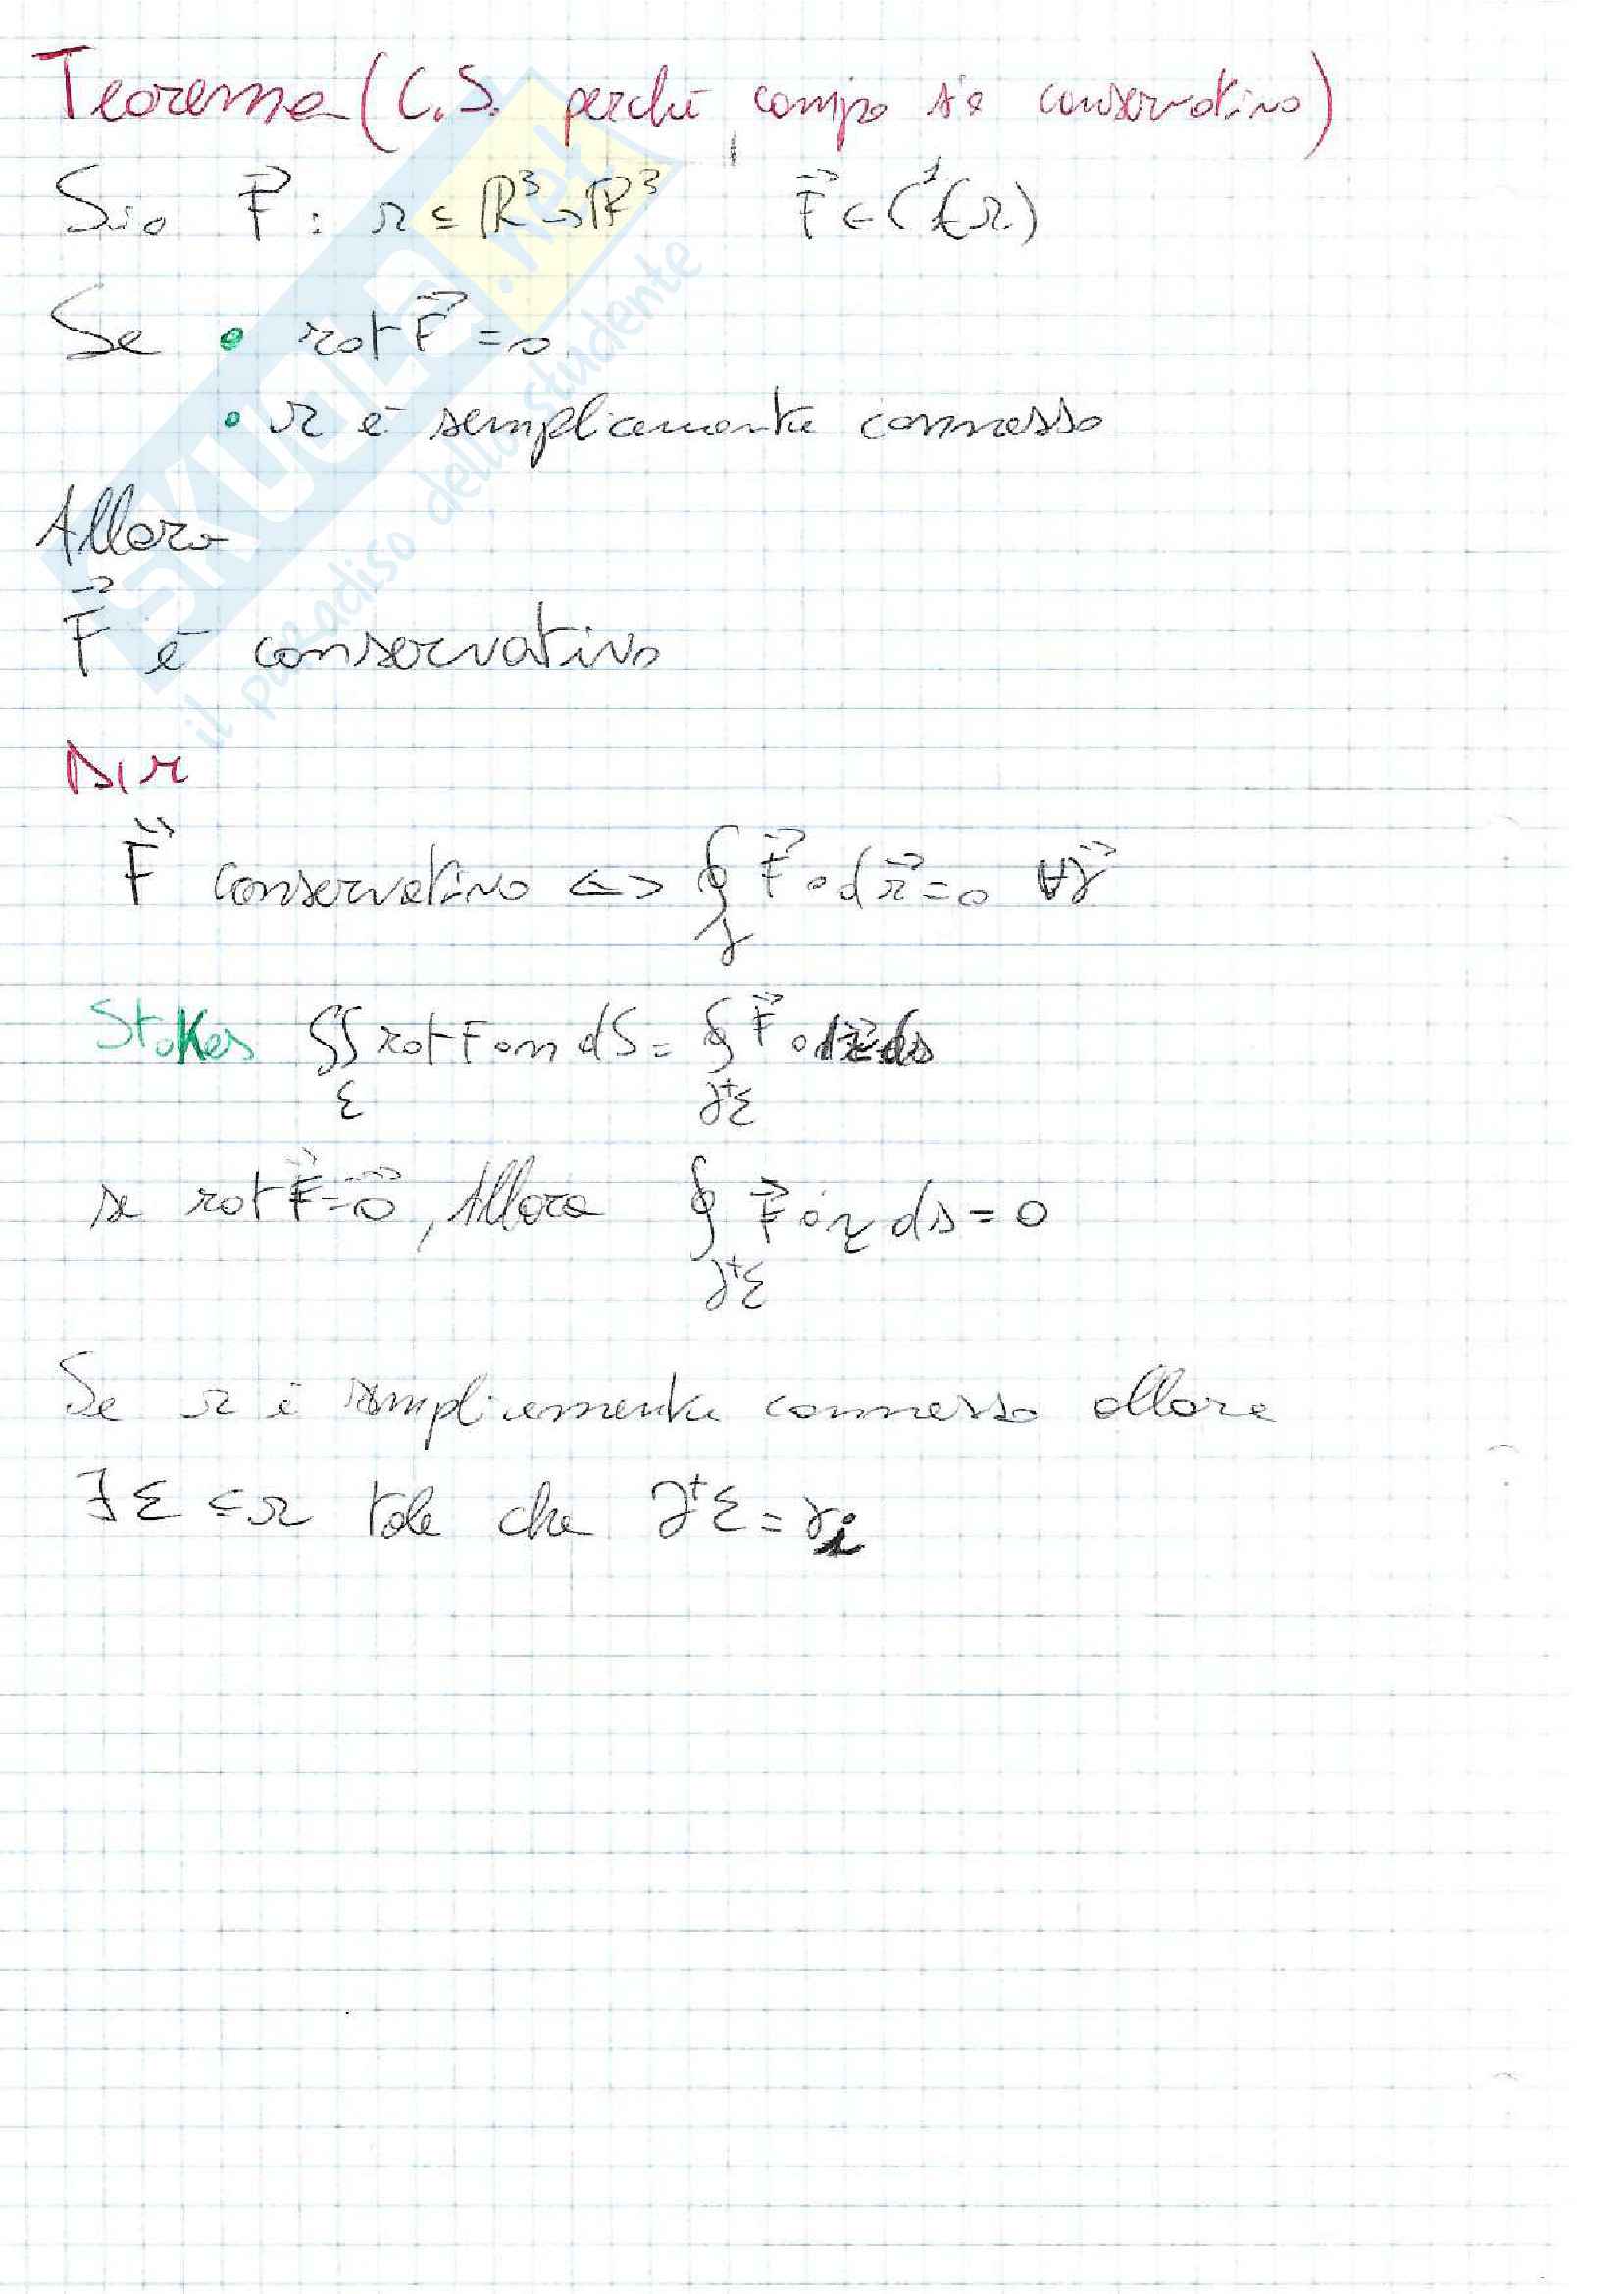 Teorema (C.S. perché campo sia conservativo)
Sia F⃗ : Ω ⊆ ℝ³ → ℝ³ F⃗ ∈ C¹(Ω)
Se • rot F⃗ = 0
• Ω è semplicemente connesso
Allora
F⃗ è conservativo
DIM
F⃗ conservativo <=> ∮_γ F⃗ ∘ dr⃗ = 0 ∀γ⃗
Stokes ∬_Σ rot F ∘ n dS = ∮_∂⁺Σ F⃗ ∘ ds
se rot F⃗ = 0⃗, Allora ∮_∂⁺Σ F⃗ ∘ τ ds = 0
Se Ω è semplicemente connesso allora
∃ Σ ⊆ Ω tale che ∂⁺Σ = γi
SKUOLA.net
il paradiso dello studente